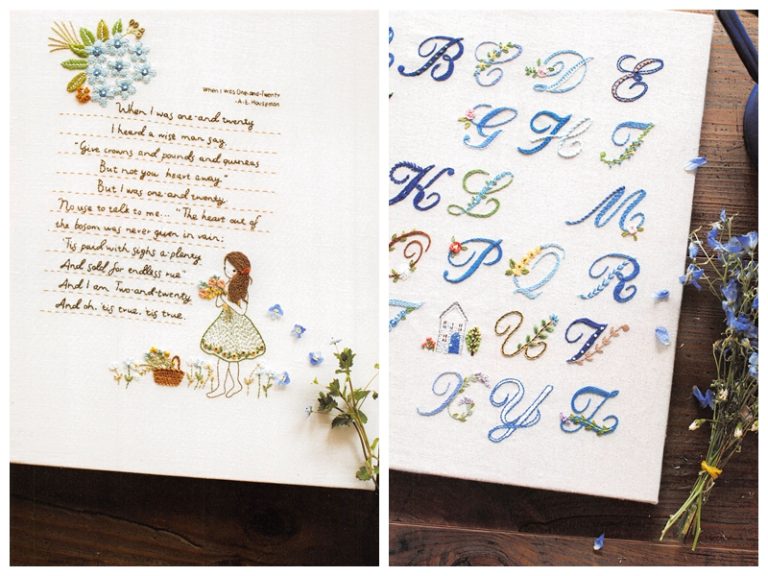 When I was One-and-Twenty
- A. E. Housman
When I was one-and-twenty
I heard a wise man say,
"Give crowns and pounds and guineas
But not your heart away."
But I was one-and-twenty,
No use to talk to me... "The heart out of
the bosom was never given in vain;
'Tis paid with sighs a plenty
And sold for endless rue."
And I am Two-and-twenty
And oh, 'tis true, 'tis true.
B C D E
G H I
K L M
O P Q R
U
X Y Z